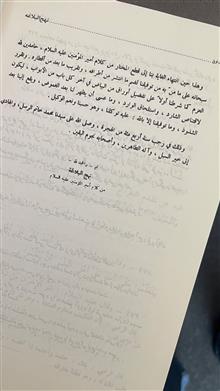 نهج البلاغة
وهذا حين انتهاء الغاية بنا إلى قطع المختار من كلام أمير المؤمنين عليه السلام ، حامدين لله
سبحانه على ما منّ به من توفيقنا لضم ما انتشر من أطرافه ، وتقريب ما بعد من أقطاره . وتقرر
العزم كما شرطنا أولاً على تفضيل أوراق من البياض في آخر كل باب من الأبواب ، ليكون
لاقتناص الشارد ، واستلحاق الوارد ، وما عسى أن يظهر لنا بعد الغموض ، ويقع إلينا بعد
الشذوذ ، وما توفيقنا إلا بالله : عليه توكلنا ، وهو حسبنا ونعم الوكيل .
وذلك في رجب سنة أربع مائة من الهجرة ، وصلى الله على سيدنا محمد خاتم الرسل ، والهادي
إلى خير السبل ، وآله الطاهرين ، وأصحابه نجوم اليقين .
نهج البلاغة
من كلام أمير المؤمنين عليه السلام